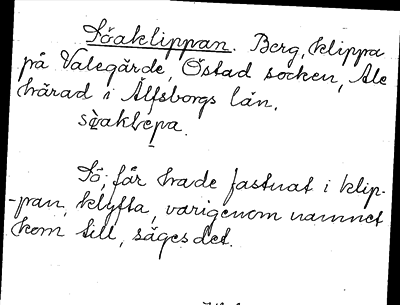 Söaklippan. Berg, klippa
på Valegärde, Östad socken, Ale
härad i Älfsborgs län.
Sö; får hade fastnat i klip-
-pan, klyfta, varigenom namnet
kom till, säges det.